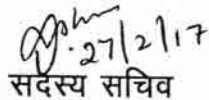 27/2/17
सदस्य सचिव